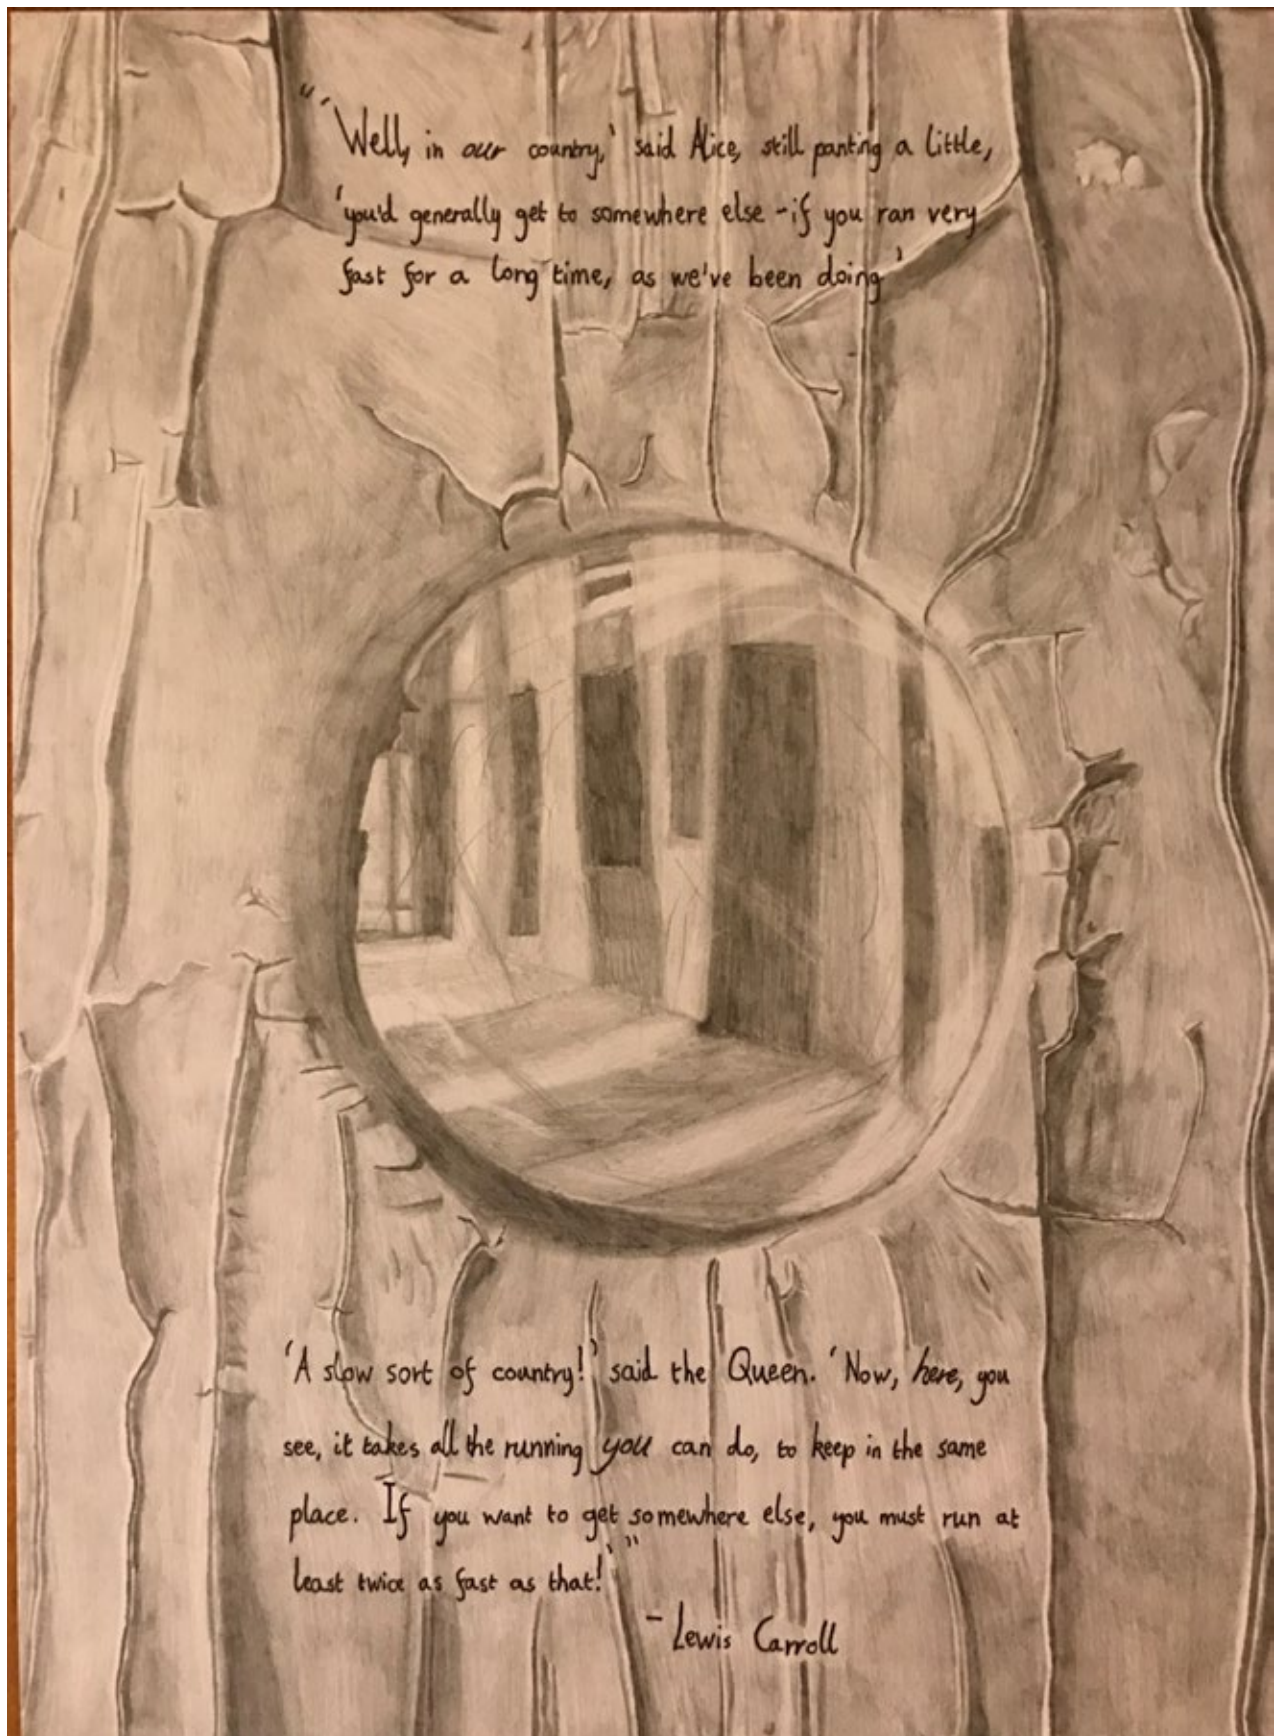 "'Well, in our country,' said Alice, still panting a little,
'you'd generally get to somewhere else - if you ran very
fast for a long time, as we've been doing'
'A slow sort of country!' said the Queen. 'Now, here, you
see, it takes all the running you can do, to keep in the same
place. If you want to get somewhere else, you must run at
least twice as fast as that!'"
- Lewis Carroll